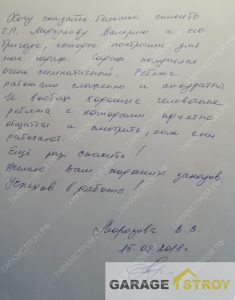 Хочу сказать большое спасибо
Валерию и его
бригаде, которые построили для
нас гараж. Гараж получился
очень симпатичный. Ребята
работали слаженно и аккуратно
И вообще хорошие человечные
ребята с которыми приятно
общаться и смотреть, как они
работают.
Ещё раз спасибо!
Желаю Вам хороших заказов
Успехов в работе!
Морозова В. В.
15.09.2018г.
GARAGE
STROY